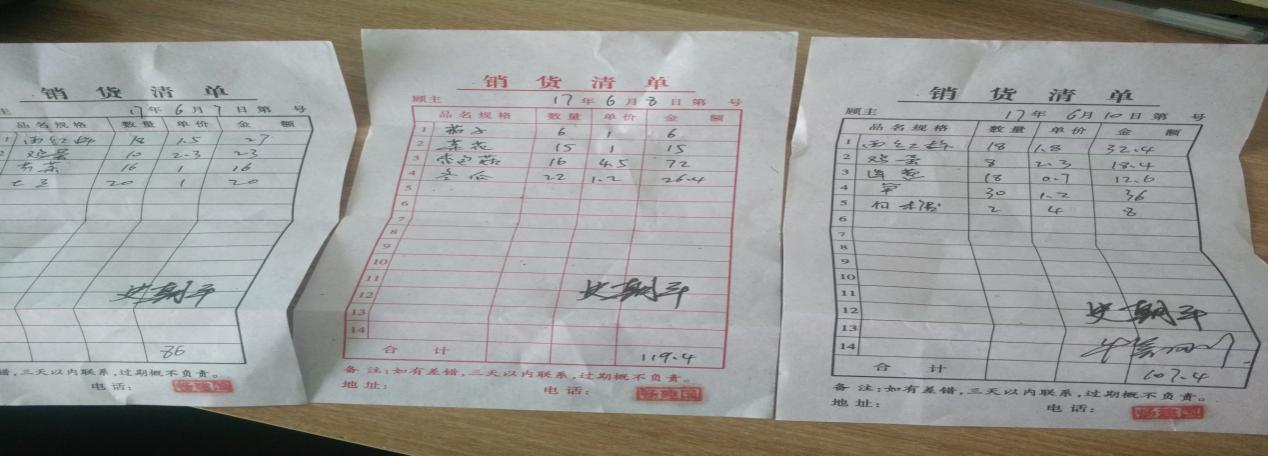 销货清单
主 17年6月7日第 号
品名规格 数量 单价 金额
1 西红柿 18 1.5 27
2 鸡蛋 10 2.3 23
16 1 16
土豆 20 1 20
史朝平
86
错,三天以内联系,过期概不负责。
电话:
销货清单
顾主 17年6月8日第 号
品名规格 数量 单价 金额
1 茄子 6 1 6
2 菜花 15 1 15
3 16 4.5 72
4 冬瓜 22 1.2 26.4
5
6
7
8
9
10
11
12 史朝平
13
14
合计 119.4
备注:如有差错,三天以内联系,过期概不负责。
地址: 电话:
销货清单
顾主 17年6月10日第 号
品名规格 数量 单价 金额
1 西红柿 18 1.8 32.4
2 鸡蛋 8 2.3 18.4
3 洋葱 18 0.7 12.6
4 30 1.2 36
5 2 4 8
6
7
8
9
10
11
12 史朝平
13
14
合计 107.4
备注:如有差错,三天以内联系,过期概不负责。
地址: 电话: